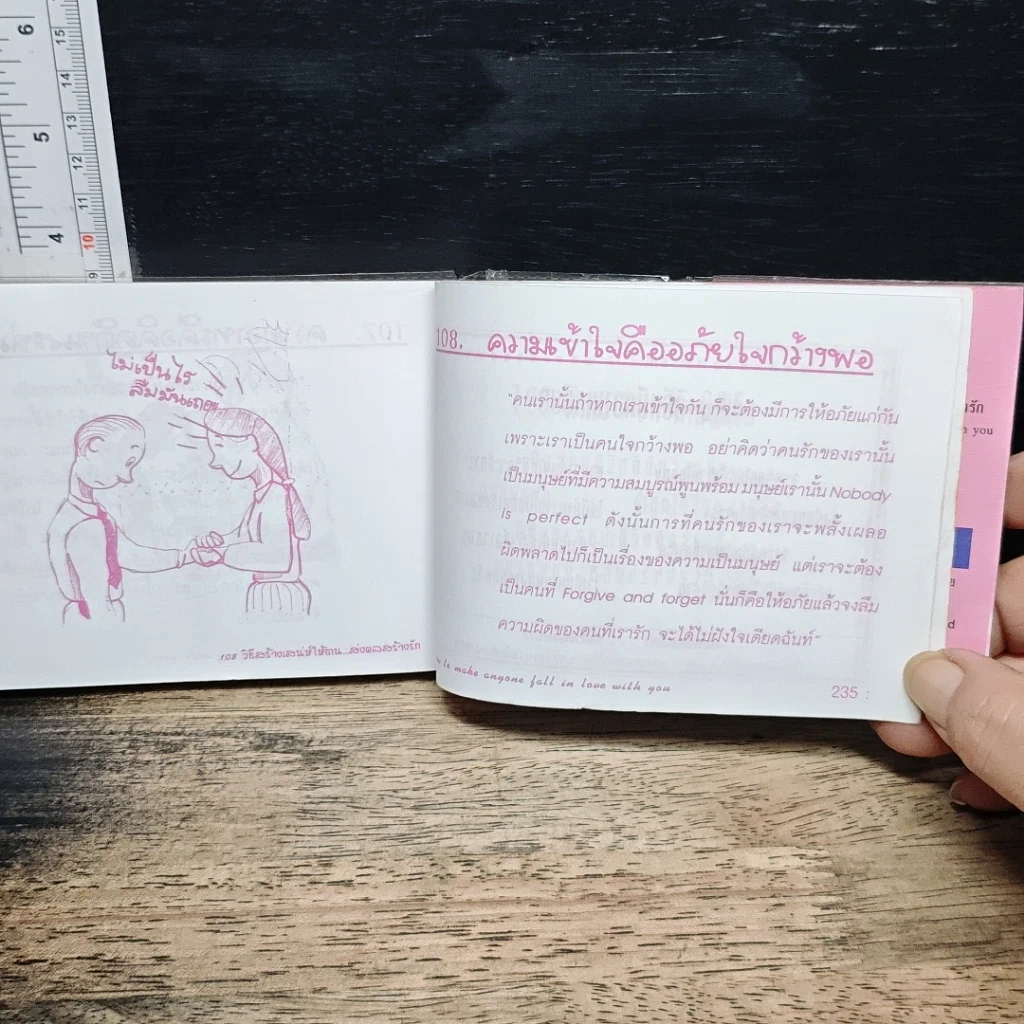 6
5
4
15
14
13
12
11
10
9
ไม่เป็นไร
ลืมมันเถอะ
108 วิธีสร้างเสน่ห์ให้ตน...
108. ความเข้าใจคืออภัยใจกว้างพอ
"คนเรานั้นถ้าหากเราเข้าใจกัน ก็จะต้องมีการให้อภัยแก่กัน
เพราะเราเป็นคนใจกว้างพอ อย่าคิดว่าคนรักของเรานั้น
เป็นมนุษย์ที่มีความสมบูรณ์พูนพร้อม มนุษย์เรานั้น Nobody
is perfect ดังนั้นการที่คนรักของเราจะพลั้งเผลอ
ผิดพลาดไปก็เป็นเรื่องของความเป็นมนุษย์ แต่เราจะต้อง
เป็นคนที่ Forgive and forget นั่นก็คือให้อภัยแล้วจงลืม
ความผิดของคนที่เรารัก จะได้ไม่ฝังใจเดียดฉันท์"
make anyone fall in love with you
235 :
รัก
you